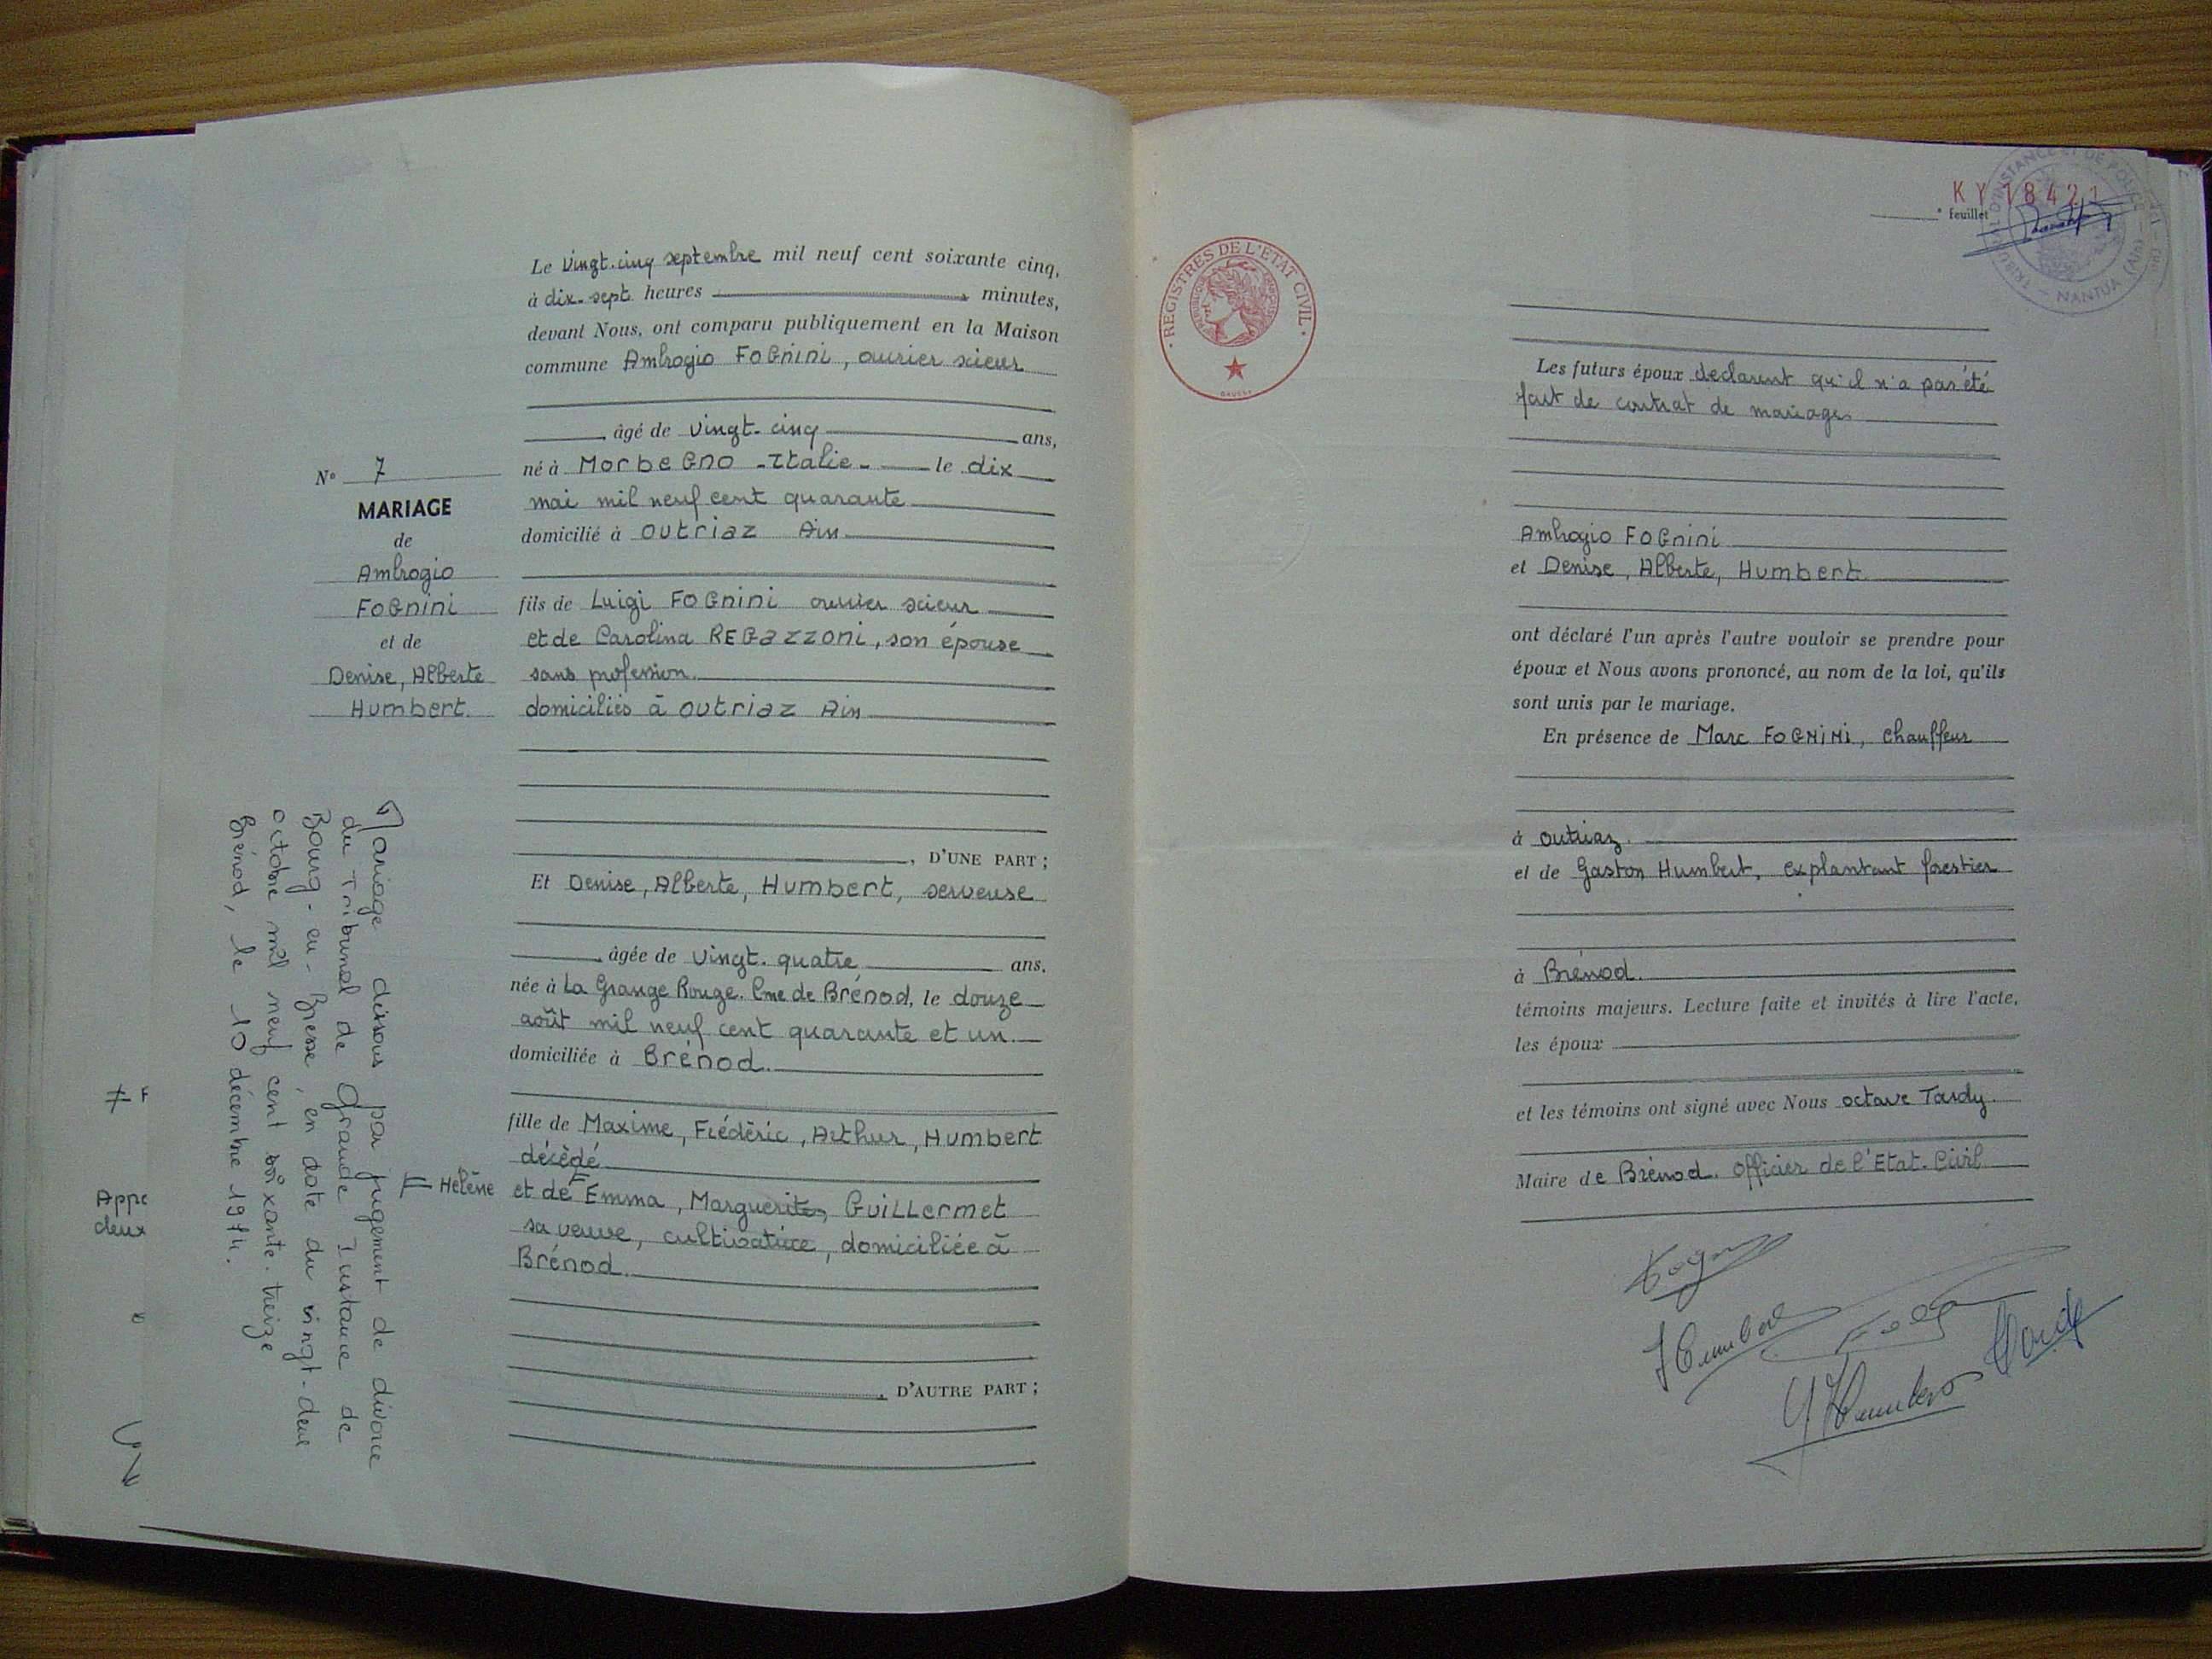 Le Vingt-cinq septembre mil neuf cent soixante cinq,
à dix-sept heures minutes,
devant Nous, ont comparu publiquement en la Maison
commune Ambrogio FOGNINI, ouvrier scieur
âgé de vingt-cinq ans,
né à MORBEGNO -Italie- le dix
mai mil neuf cent quarante
domicilié à OUTRIAZ Ain
fils de Luigi FOGNINI ouvrier scieur
et de Carolina REGAZZONI, son épouse
sans profession.
domiciliés à OUTRIAZ Ain
, D'UNE PART ;
Et Denise, Alberte, HUMBERT, serveuse
âgée de vingt-quatre ans.
née à La Grange Rouge. Cne de Brénod, le douze
août mil neuf cent quarante et un
domiciliée à Brénod.
fille de Maxime, Frédéric, Arthur, HUMBERT
décédé
et de Emma, Marguerite, GUILLERMET
sa veuve, cultivatrice, domiciliée à
Brénod.
, D'AUTRE PART ;
N° 7
MARIAGE
de
Ambrogio
FOGNINI
et de
Denise, Alberte
HUMBERT.
Hélène
Mariage dissous par jugement de divorce
du Tribunal de Grande Instance de
Bourg-en-Bresse, en date du vingt-deux
octobre mil neuf cent soixante-treize
Brénod, le 10 décembre 1974.
Appe
deux
REGISTRES DE L'ETAT CIVIL
KY 18421
feuillet
TRIBUNAL D'INSTANCE ET DE POLICE
NANTUA (Ain)
Les futurs époux déclarent qu'il n'a pas été
fait de contrat de mariage
Ambrogio FOGNINI
et Denise, Alberte, HUMBERT
ont déclaré l'un après l'autre vouloir se prendre pour
époux et Nous avons prononcé, au nom de la loi, qu'ils
sont unis par le mariage.
En présence de Marc FOGNINI, chauffeur
à Outriaz.
et de Gaston Humbert, explantant forestier
à Brénod.
témoins majeurs. Lecture faite et invités à lire l'acte,
les époux
et les témoins ont signé avec Nous Octave Tardy.
Maire de Brénod. Officier de l'Etat-Civil